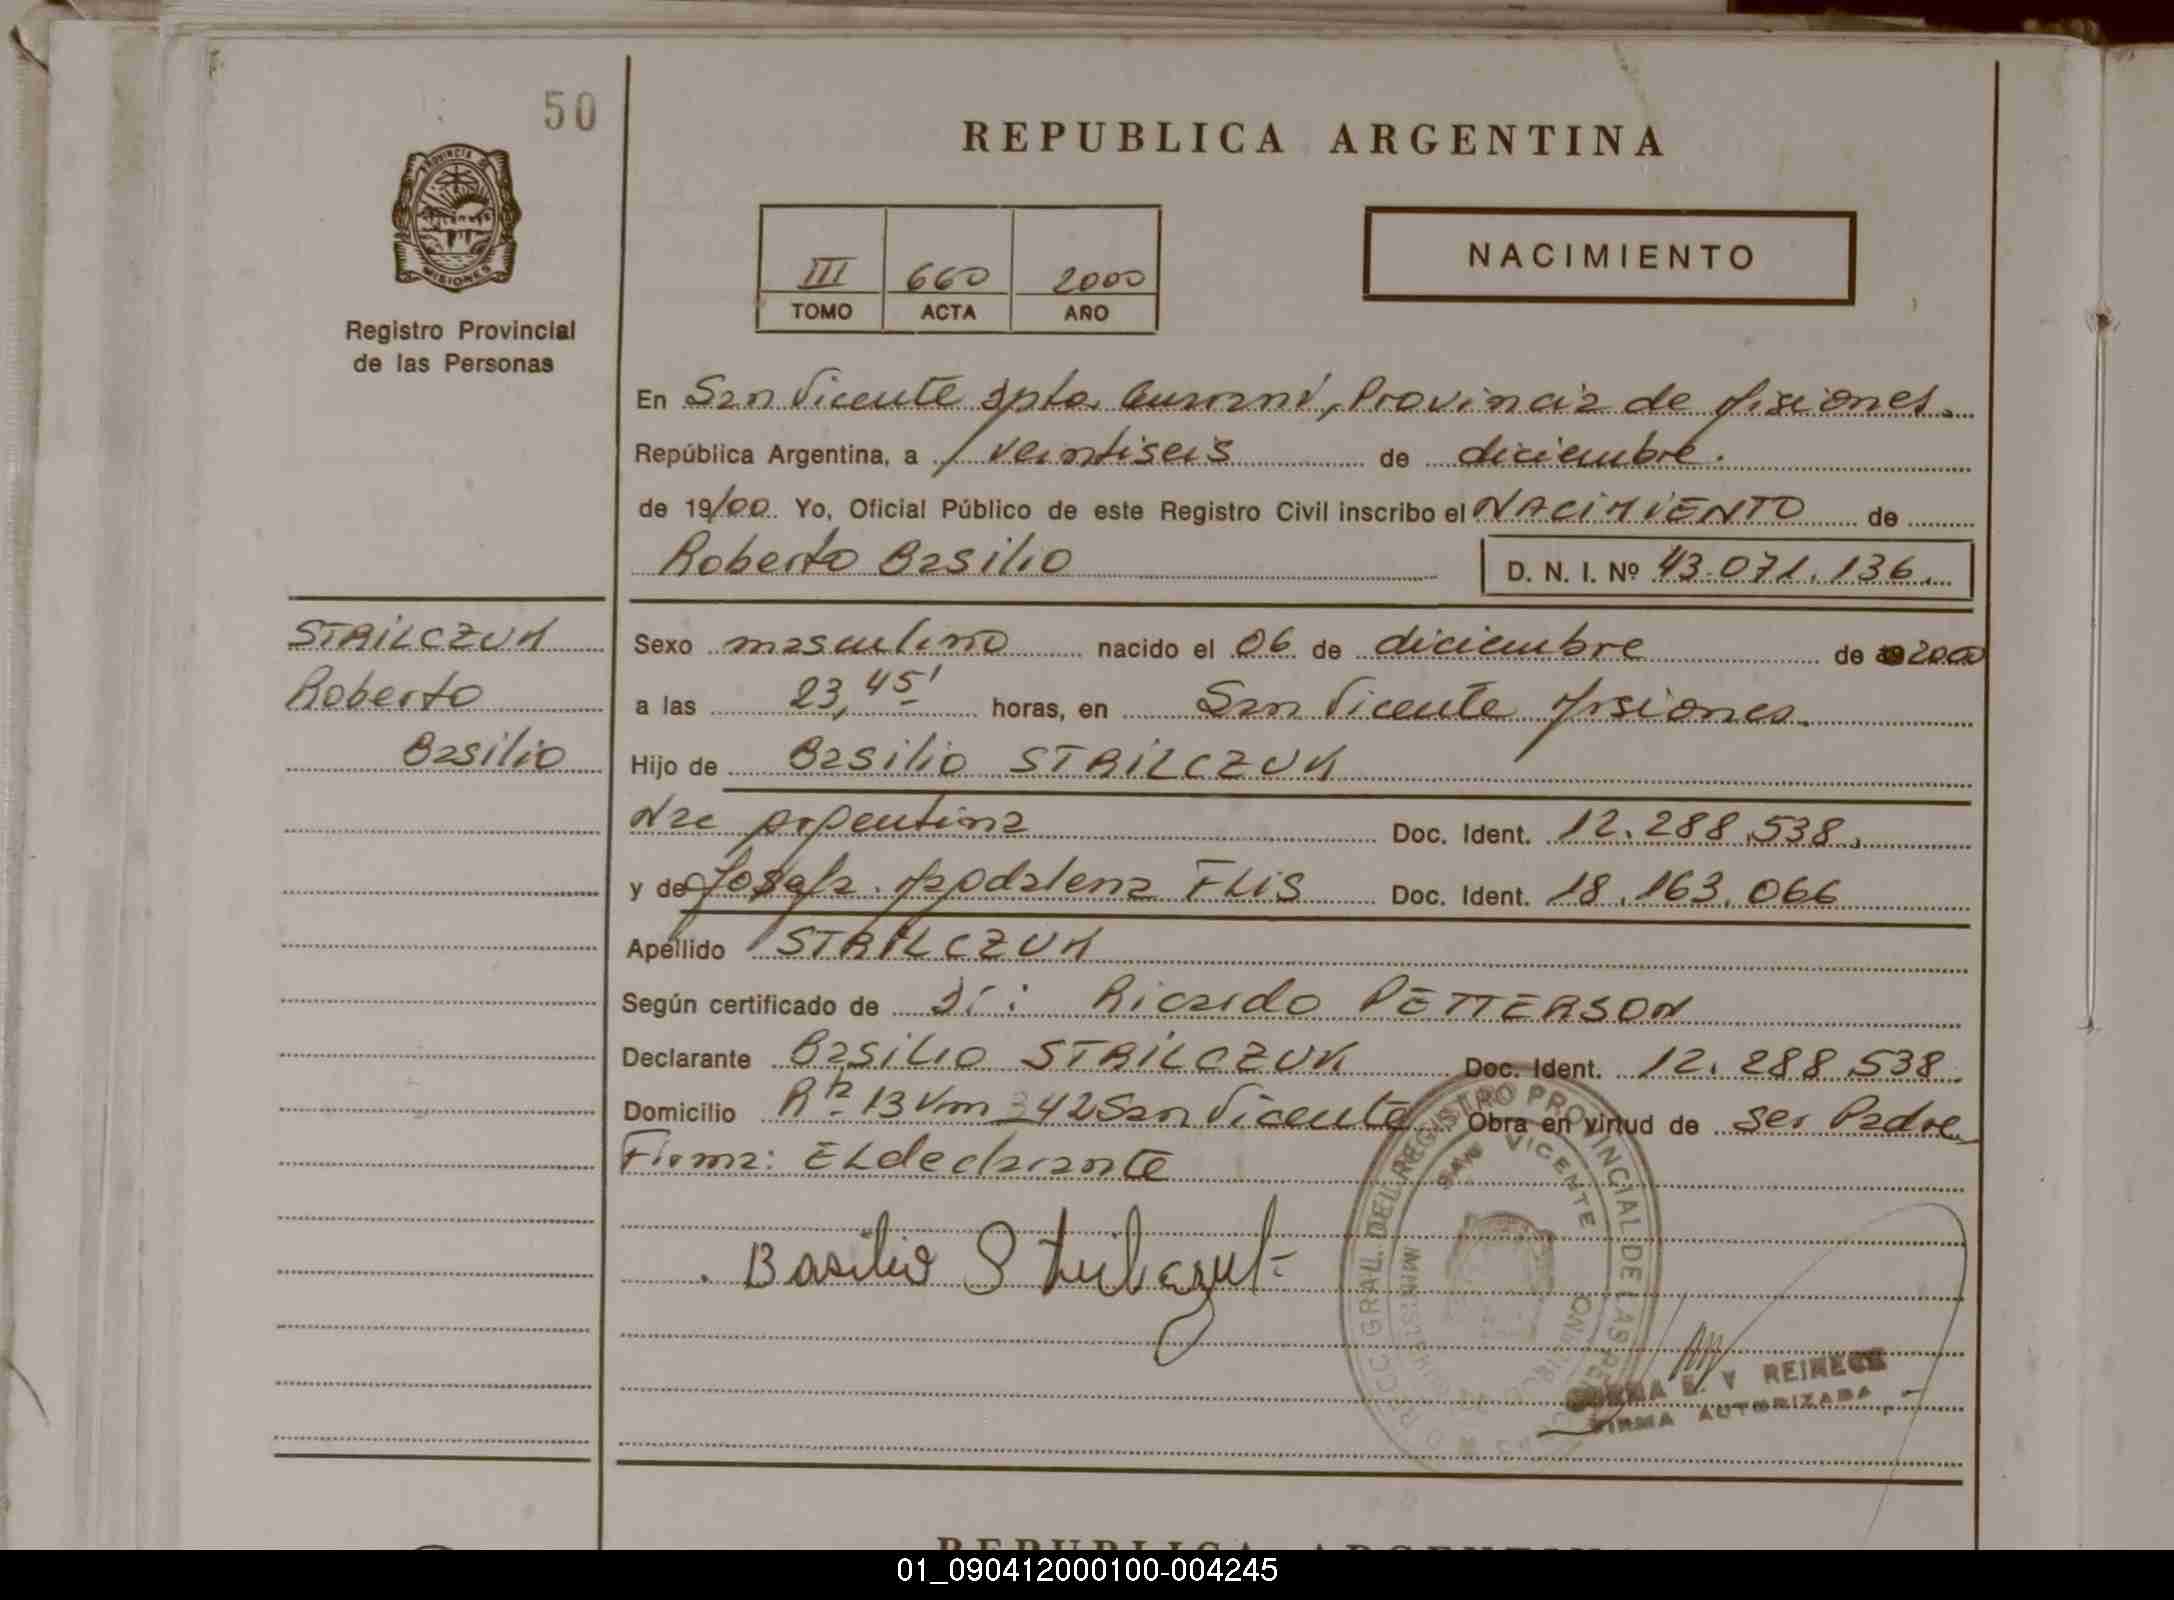 50
REPUBLICA ARGENTINA
PROVINCIA DE
MISIONES
Registro Provincial
de las Personas
III 660 2000
TOMO ACTA AÑO
NACIMIENTO
En San Vicente Dpto. Guaraní, Provincia de Misiones.
República Argentina, a veintiseis de diciembre.
de 19/00. Yo, Oficial Público de este Registro Civil inscribo el NACIMIENTO de
Roberto Basilio D. N. I. Nº 43.071.136.
STRILCZUK
Roberto
Basilio
Sexo masculino nacido el 06 de diciembre de 2000
a las 23,45' horas, en San Vicente Misiones.
Hijo de Basilio STRILCZUK
Nac argentina Doc. Ident. 12.288.538.
y de Josefa Magdalena FLIS Doc. Ident. 18.163.066
Apellido STRILCZUK
Según certificado de Ricardo PETTERSON
Declarante Basilio STRILCZUK Doc. Ident. 12.288.538.
Domicilio Rta. 13 Km 342 San Vicente Obra en virtud de ser Padre
Firma: El declarante
Basilio Strilczuk
REGISTRO PROVINCIAL DE LAS
SAN VICENTE
REINECK
FIRMA AUTORIZADA
REPUBLICA ARGENTINA
01_090412000100-004245